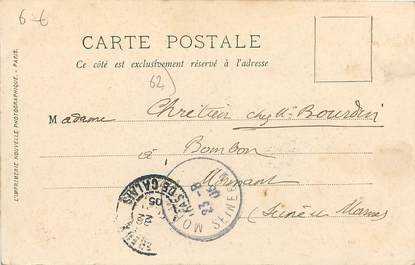 6 €
CARTE POSTALE
Ce côté est exclusivement réservé à l'adresse
62
Madame Chrétien chez Mr Bourdin
à Bombon
Mormant
Seine et Marne
L'IMPRIMERIE NOUVELLE PHOTOGRAPHIQUE - PARIS.
PAS-DE-CALAIS
05
23
-8
05